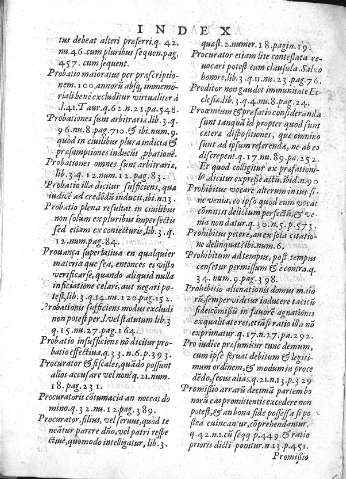 INDEX
tus debeat alteri præferri. q. 42.
nu. 46. cum pluribus sequen. pag.
457. cum sequent.
Probatio maioratus per præscriptio-
nem. 100. annorū absq; immemo-
riali benè excluditur virtualiter à
l. 41. Taur. q. 62. n. 21. p. 548.
Probationes sunt arbitrariæ, lib. 3. q.
96. nu. 8. pag. 710. & ibi. nu. 9.
quòd in ciuilibus plura indicia &
præsumptiones inducūt pbationē.
Probationes omnes sunt arbitrariæ,
lib. 3. q. 12. num. 12. pag. 83.
Probatio illa dicitur sufficiens, quæ
iudicē ad credēdū inducit, ibi. n. 13.
Probatio plena resultat in ciuilibus
non solum ex pluribus imperfectis
sed etiam ex coniecturis, lib. 3. q.
12. num. pag. 84.
Prouança superlatiua en qualquier
materia que sea, entonces es visto
verificarse, quando aliquid nulla
inficiatione celari, aut negari po-
test, lib. 3. q. 14. nu. 120. pag. 152.
Probationis sufficientis modus excludi
non potest per l. vel statutum lib. 3
q. 15. nu. 27. pag. 164.
Probatio insufficiens nō dicitur pro-
batio effectiua, q. 33. n. 6. p. 393.
Procurator & fiscales, quādo possunt
alios accusare vel non? q. 21. num.
18. pag. 231.
Procuratoris cotumacia an noceat do
mino. q. 32. nu. 12. pag. 389.
Procurator, filius, vel seruus, quid te
neātur parere dño, vel patri respe
ctiuè, quomodo intelligatur, lib. 3.
quæst. 2. numer. 18. pagin. 19.
Procurator etiam lite contestata re-
uocari potest cum clausula. Saluo
honore, lib. 3. q. 11. nu. 23. pag. 76.
Proditor non gaudet immunitate Ec
clesiæ. lib. 3. q. 4. nu. 8. pag. 24.
Proœmium & præfatio consideranda
sunt tanquā id propter quod sunt
cetera dispositiones, quæ omnino
sunt ad ipsum referenda, ne ab eo
discrepent. q. 17. nu. 89. pa. 252.
Et quod colligitur ex præfatione
dicitur expresse actū, ibid. n. 90
Prohibitur vocare alterum in ius si
ne venia, eo ipso quòd eum vocat
cōmittis delictum perfectè, & ve-
niæ non datur. q. 30. n. 5. p. 573.
Prohibito petere, an ex sola citatio-
ne delinquat; ibi. num. 6.
Prohibitum ad tempus, post tempus
censetur permissum & contra. q.
34. num. 9. pag. 398.
Prohibitio alienationis domus maio
rū, semper videtur inducere tacitū
fideicōmissū in fauorē agnationis
ex qualitate rei, etiā si ratio illa nō
exprimatur. q. 17. n. 27. pa. 292.
Pro iudice præsumitur tunc demum,
cum ipse seruat debitum & legiti-
mum ordinem, & modum in proce
dēdo, secus aliàs, q. 21. n. 13. p. 329
Promissio arrarū decimā partem bo
norū eas promittentis excedere non
potest, & an bona fide possessa si po
stea euincantur, cōprehendantur.
q. 42. n. 1. cū seqq. p. 449. & ratio
prioris dicti ponitur. n. 13. p. 451.
Promissio